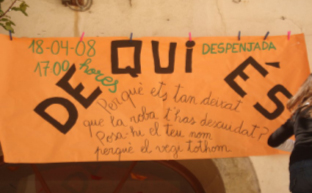 18-04-08 DESPENJADA
17:00 hores
DE QUI ÉS
Perquè ets tan deixat
que la roba t'has descuidat?
Posa-hi el teu nom
perquè el vegi tothom